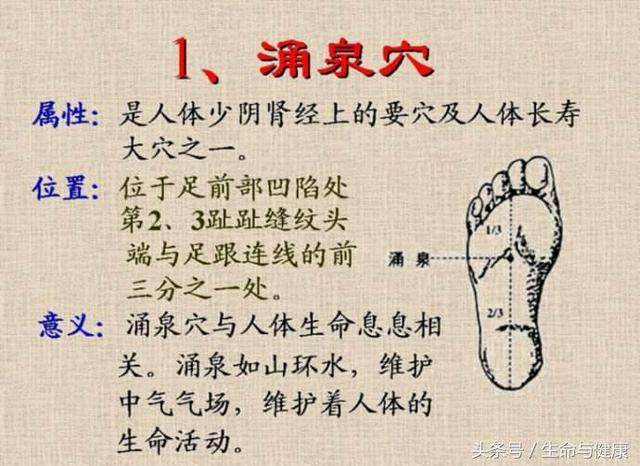 1、涌泉穴
属性：是人体少阴肾经上的要穴及人体长寿
大穴之一。
位置：位于足前部凹陷处
第2、3趾趾缝纹头
端与足跟连线的前
三分之一处。
1/3
涌泉
2/3
意义：涌泉穴与人体生命息息相
关。涌泉如山环水，维护
中气气场，维护着人体的
生命活动。
头条号／生命与健康